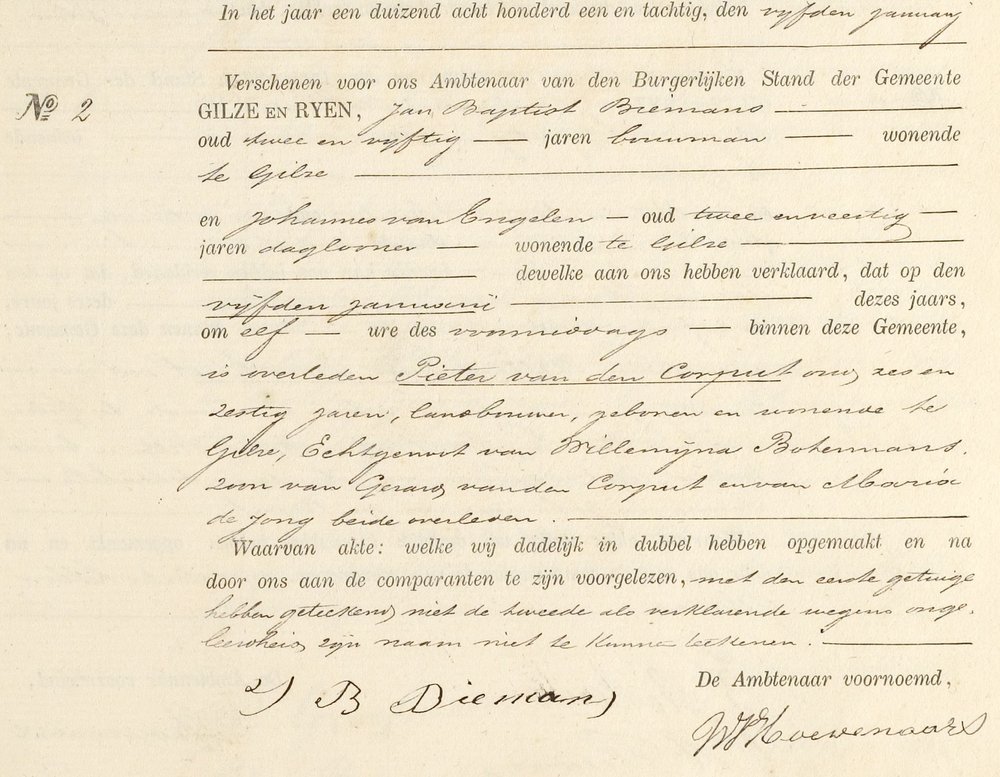 In het jaar een duizend acht honderd een en tachtig, den vyfden januarij
Verschenen voor ons Ambtenaar van den Burgerlijken Stand der Gemeente
No 2
GILZE EN RYEN, Jan Baptist Biemans
oud twee en vijftig jaren bouwman wonende
te Gilze
en Johannes van Engelen oud twee en veertig
jaren daglooner wonende te Gilze
dewelke aan ons hebben verklaard, dat op den
vijfden januarii dezes jaars,
om elf ure des voormiddags binnen deze Gemeente,
is overleden Pieter van den Corput oud zes en
zestig jaren, landbouwer, geboren en wonende te
Gilze, Echtgenoot van Willemijna Botermans,
zoon van Gerard van den Corput en van Maria
de Jong beide overleden.
Waarvan akte: welke wij dadelijk in dubbel hebben opgemaakt en na
door ons aan de comparanten te zijn voorgelezen, met den eerste getuige
hebben geteekend, niet de tweede als verklarende wegens onge-
leerdheid zijn naam niet te kunnen teekenen.
De Ambtenaar voornoemd,
J B Biemans